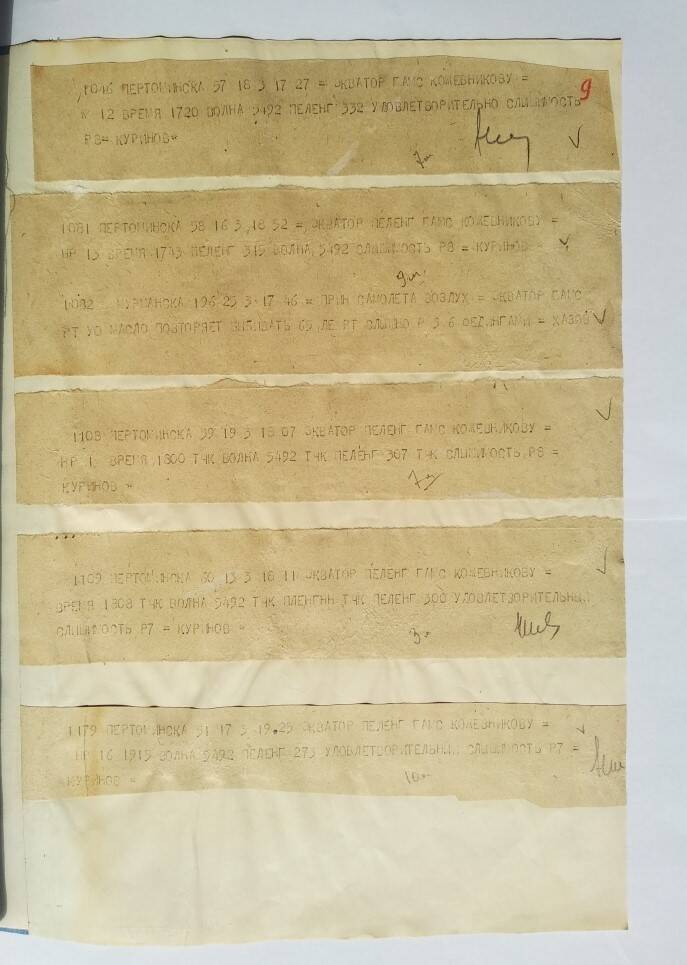 9
1046 ПЕРТОМИНСКА 57 18 3 17 27 = ЭКВАТОР ГАМС КОЖЕВНИКОВУ =
12 ВРЕМЯ 1720 ВОЛНА 5492 ПЕЛЕНГ 332 УДОВЛЕТВОРИТЕЛЬНО СЛЫШИМОСТЬ
Р8= КУРИНОВ=
1081 ПЕРТОМИНСКА 58 16 3 18 52 = ЭКВАТОР ПЕЛЕНГ ГАМС КОЖЕВНИКОВУ =
НР 13 ВРЕМЯ 1743 ПЕЛЕНГ 315 ВОЛНА 5492 СЛЫШИМОСТЬ Р8 = КУРИНОВ =
1082 МУРМАНСКА 196 25 3 17 46 = ПРИН САМОЛЕТА ВОЗДУХ = ЭКВАТОР ГАМС
РТ УО МАСЛО ПОВТОРЯЕТ 69 РТ СЛЫШНО Р 5 6 ФЕДИНГАМИ = ХАЗОВ
1108 ПЕРТОМИНСКА 59 19 3 18 07 ЭКВАТОР ПЕЛЕНГ ГАМС КОЖЕВНИКОВУ =
НР ВРЕМЯ 1800 ТЧК ВОЛНА 5492 ТЧК ПЕЛЕНГ 307 ТЧК СЛЫШИМОСТЬ Р8 =
КУРИНОВ =
1109 ПЕРТОМИНСКА 60 13 3 18 11 ЭКВАТОР ПЕЛЕНГ ГАМС КОЖЕВНИКОВУ =
ВРЕМЯ 1808 ТЧК ВОЛНА 5492 ТЧК ПЛЕНГНН ТЧК ПЕЛЕНГ 300 УДОВЛЕТВОРИТЕЛЬНЫЙ
СЛЫШИМОСТЬ Р7 = КУРИНОВ =
1179 ПЕРТОМИНСКА 51 17 3 19.25 ЭКВАТОР ПЕЛЕНГ ГАМС КОЖЕВНИКОВУ =
НР 16 1915 ВОЛНА 5492 ПЕЛЕНГ 273 УДОВЛЕТВОРИТЕЛЬНЫЙ СЛЫШИМОСТЬ Р7 =
КУРИНОВ =